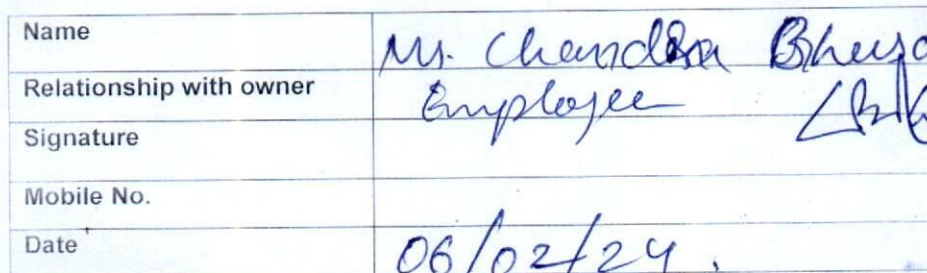 Name Mr. Chandra Bhusa
Relationship with owner Employee
Signature
Mobile No.
Date 06/02/24.